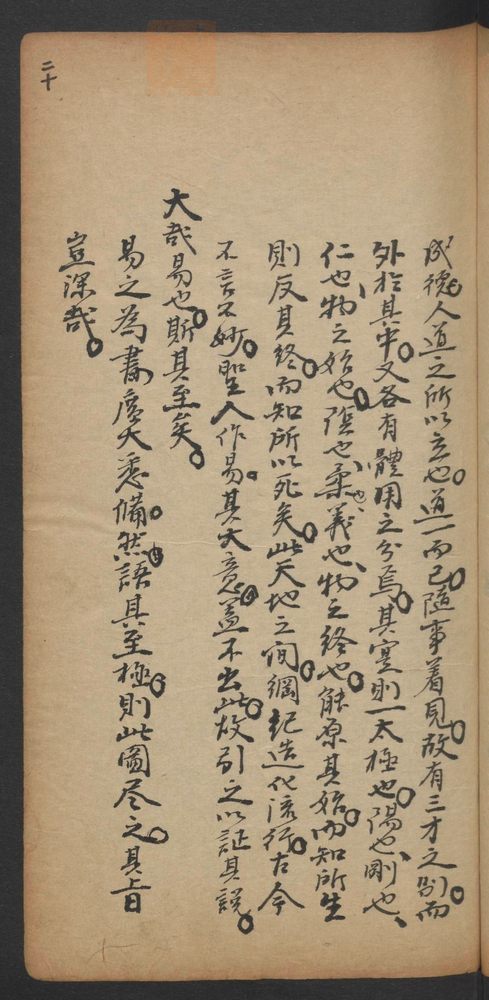 二十
成德人道之所以立也。道一而已。隨事著見。故有三才之別。而
外於其中。又各有體用之分焉。其實則一太極也。陽也、剛也、
仁也、物之始也。陰也、柔也、義也、物之終也。能原其始。而知所生
則反其終。而知所以死矣。此天地之間。綱紀造化。流行古今
不言之妙。聖人作易。其大意。蓋不出此。故引之以証其説。
大哉易也。斯其至矣。
易之為書。廣大悉備。然語其至極。則此圖尽之。其旨
豈深哉。